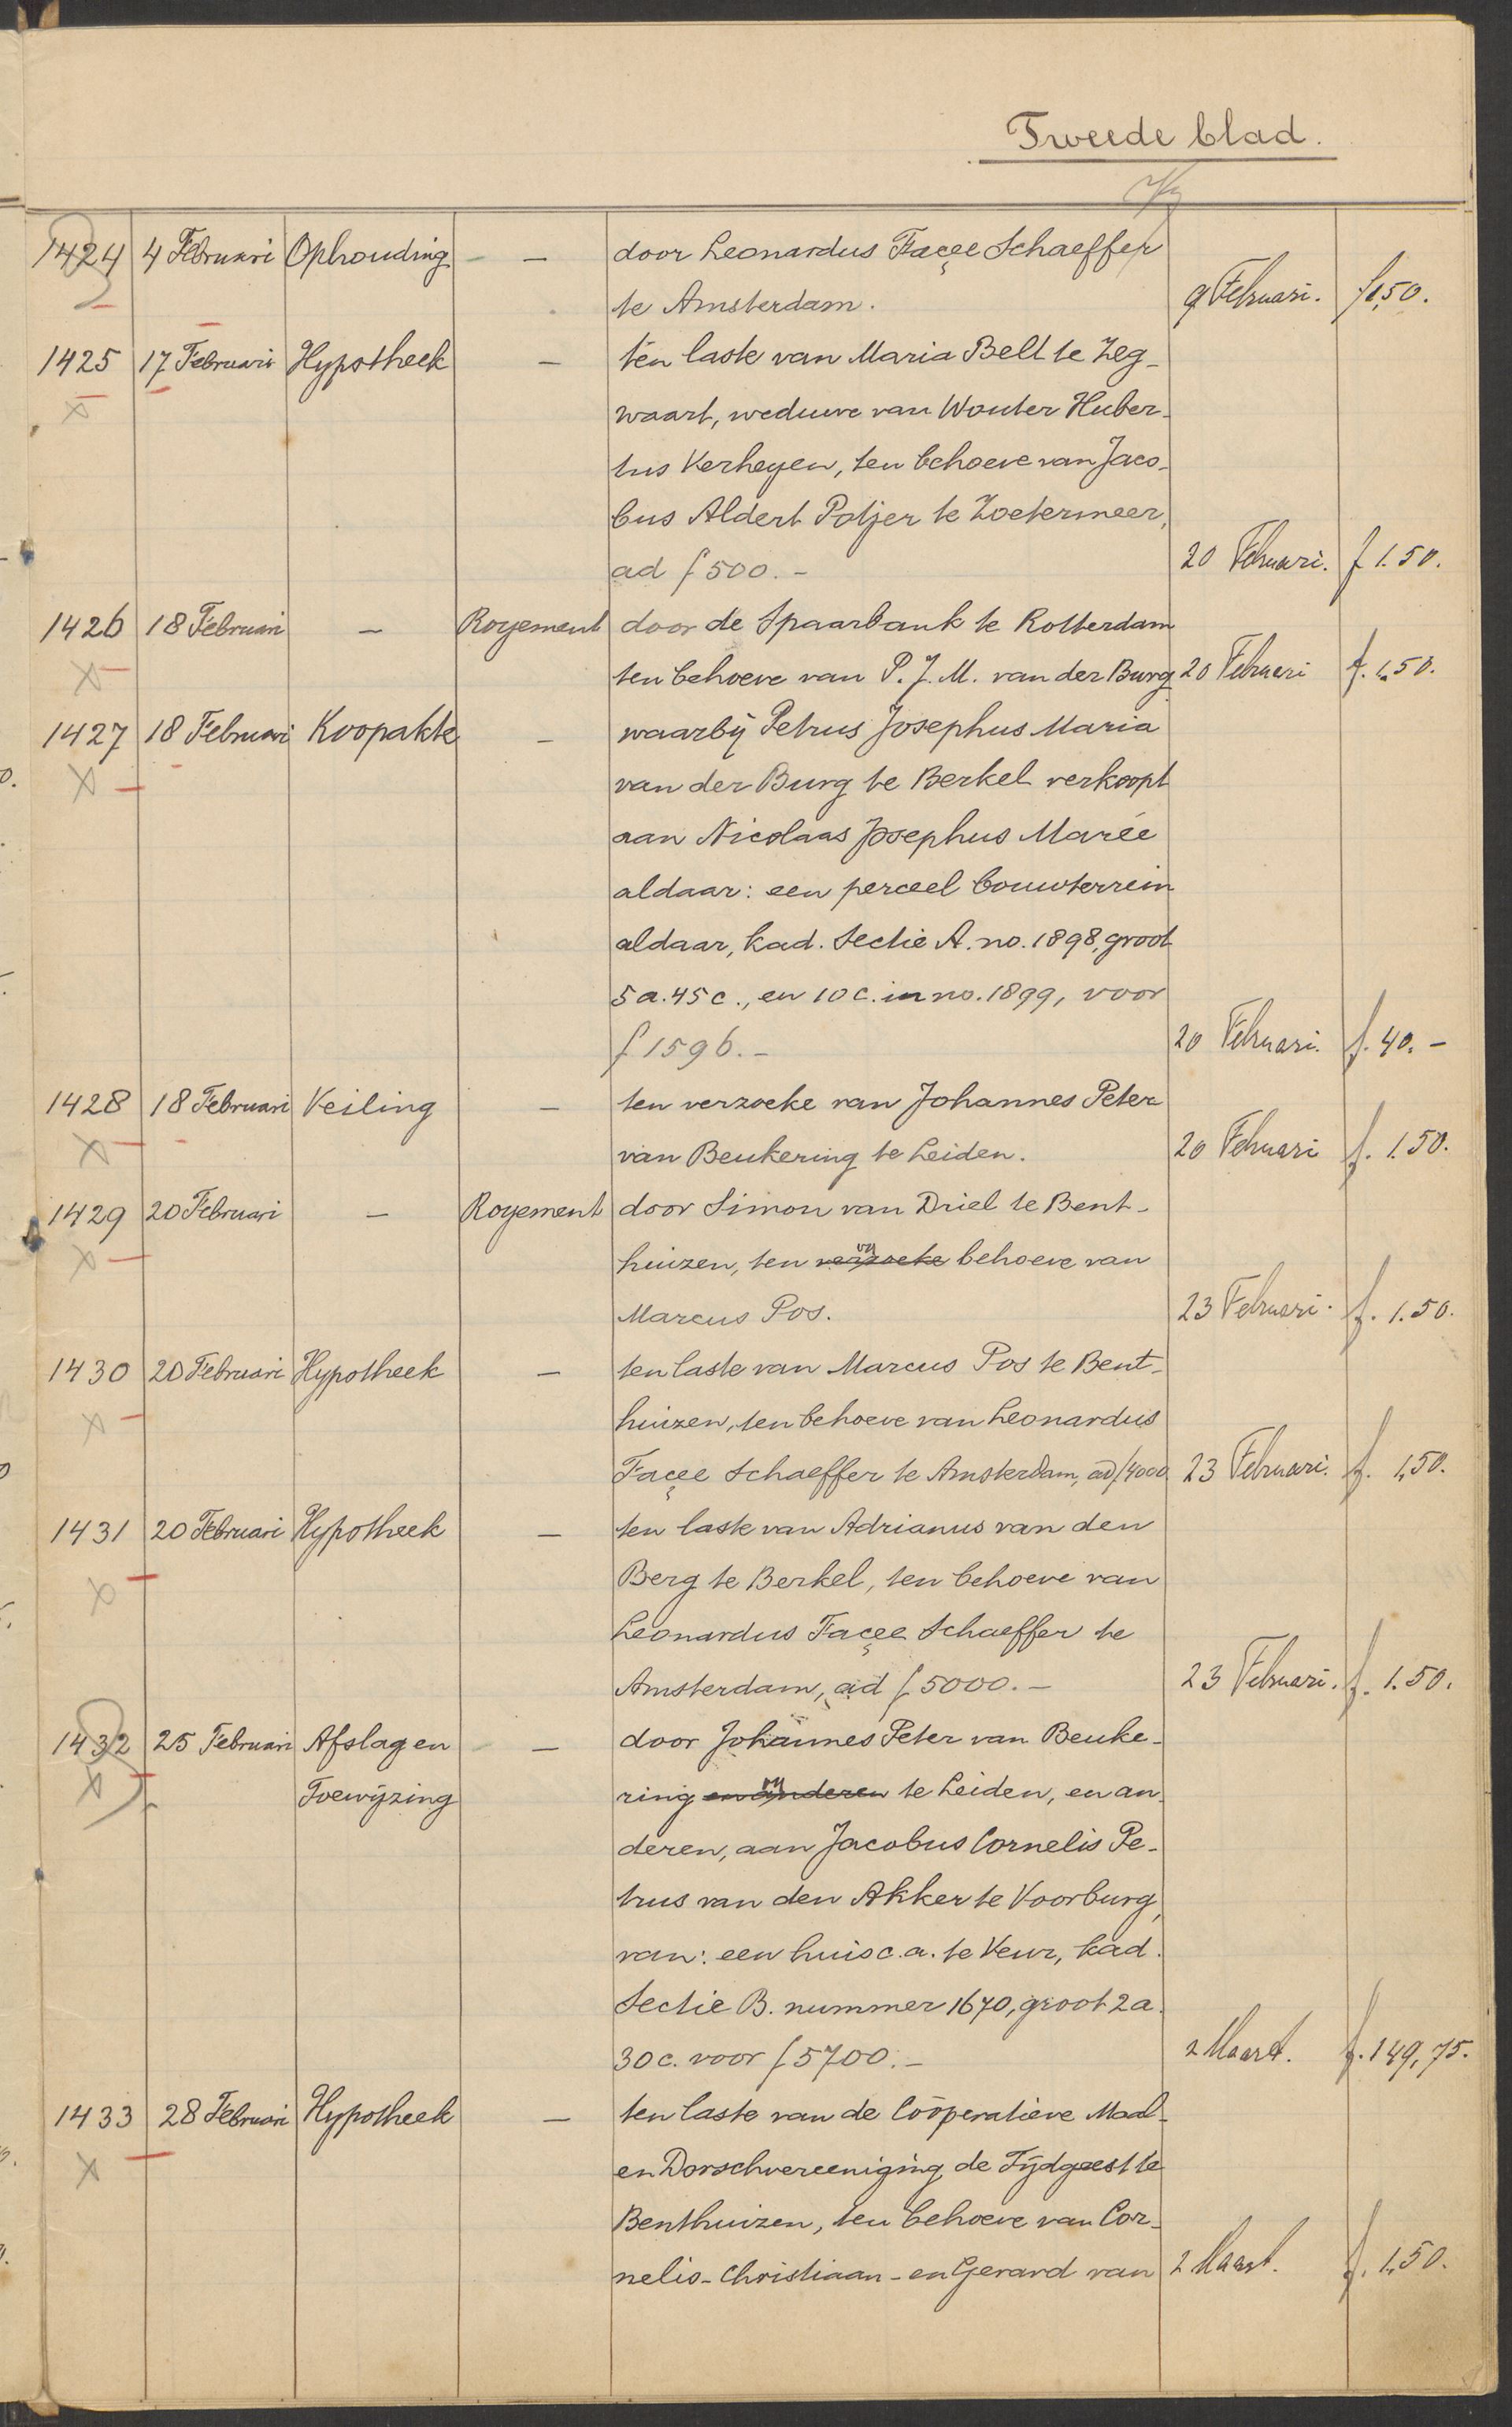 Tweede blad.
1424 4 Februari Ophouding - — door Leonardus Façee Schaeffer
te Amsterdam. 9 Februari. f 1,50.
1425 17 Februari Hypotheek — ten laste van Maria Bell te Zeg-
waart, weduwe van Wouter Huber-
tus Verheyen, ten behoeve van Jaco-
bus Aldert Potjer te Zoetermeer,
ad f 500.- 20 Februari. f 1.50.
1426 18 Februari — Royement door de Spaarbank te Rotterdam
ten behoeve van P. J. M. van der Burg 20 Februari f. 1.50.
1427 18 Februari Koopakte — waarbij Petrus Josephus Maria
van der Burg te Berkel verkoopt
aan Nicolaas Josephus Marée
aldaar: een perceel bouwterrein
aldaar, kad. Sectie A. no. 1898, groot
5 a. 45 c., en 10 c. in no. 1899, voor
f 1596.- 20 Februari. f. 40.-
1428 18 Februari Veiling — ten verzoeke van Johannes Peter
van Beukering te Leiden. 20 Februari f. 1.50.
1429 20 Februari — Royement door Simon van Driel te Bent-
huizen, ten verzoeke behoeve van
Marcus Pos. 23 Februari. f. 1.50.
1430 20 Februari Hypotheek — ten laste van Marcus Pos te Bent-
huizen, ten behoeve van Leonardus
Façee Schaeffer te Amsterdam, ad f 4000 23 Februari. f. 1,50.
1431 20 Februari Hypotheek — ten laste van Adrianus van den
Berg te Berkel, ten behoeve van
Leonardus Façee Schaeffer te
Amsterdam, ad f 5000.- 23 Februari. f. 1.50.
1432 25 Februari Afslag en - — door Johannes Peter van Beuke-
Toewijzing ring en anderen te Leiden, en an-
deren, aan Jacobus Cornelis Pe-
trus van den Akker te Voorburg,
van: een huis c.a. te Veur, kad.
Sectie B. nummer 1670, groot 2 a.
30 c. voor f 5700.- 2 Maart. f. 149,75.
1433 28 Februari Hypotheek — ten laste van de Coöperatieve Maal-
en Dorschvereeniging de Tijdgeest te
Benthuizen, ten behoeve van Cor-
nelis- Christiaan- en Gerard van 2 Maart. f. 1,50.